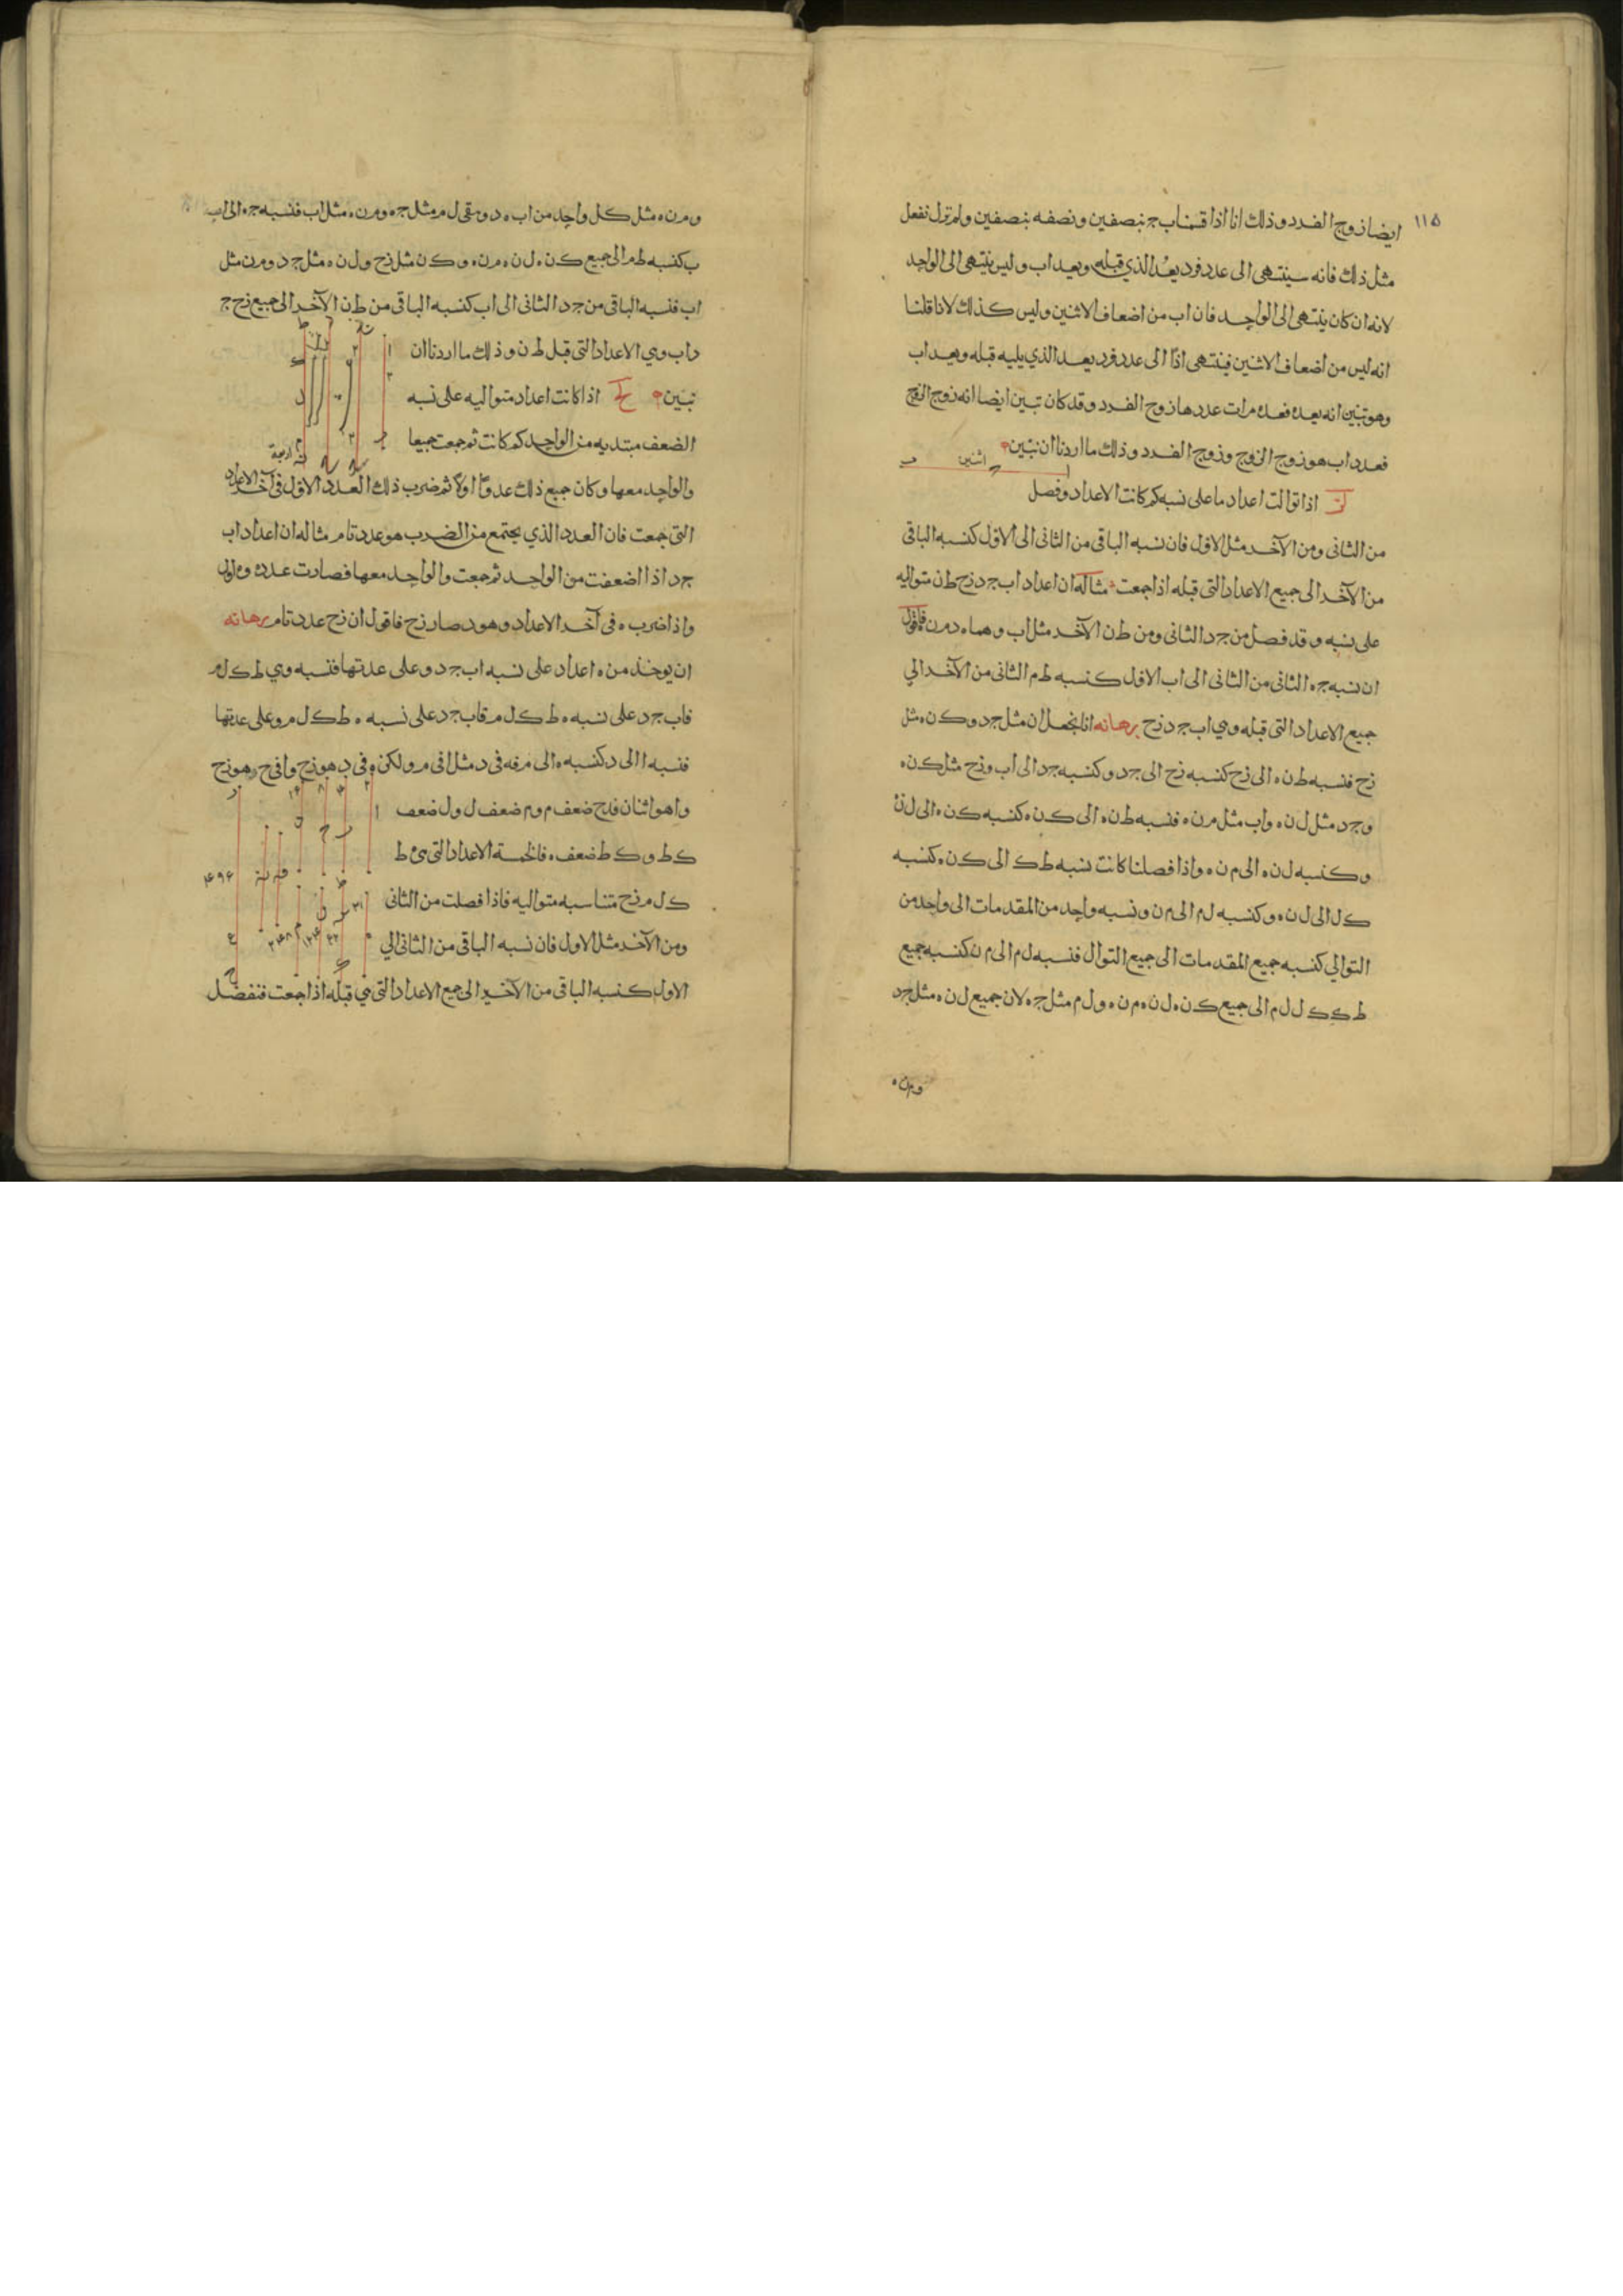 ١١٥
ايضا زوج الفرد وذلك انا اذا قسمنا اب ج بنصفين ونصفه بنصفين ولم تزل نفعل
مثل ذلك فانه سينتهى الى عدد فرد يعد الذي قبله ويعد اب وليس ينتهى الى الواحد
لانه ان كان ينتهى الى الواحد فان اب من اضعاف الاثنين وليس كذلك لانا قلنا
انه ليس من اضعاف الاثنين فينتهى اذًا الى عدد فرد يعد الذي يليه قبله ويعد اب
وهو تبين انه يعده فعده مرات عددها زوج الفرد وقد كان تبين ايضا انه زوج الزوج
فعدد اب هو زوج الزوج وزوج الفرد وذلك ما اردنا ان نبين
ا ج اثنين ب
لز اذا توالت اعداد ما على نسبه كم كانت الاعداد وفصل
من الثانى ومن الآخر مثل الاول فان نسبه الباقى من الثانى الى الاول كنسبه الباقى
من الآخر الى جميع الاعداد التى قبله اذا جمعت مثاله ان اعداد اب ج د زح ط ن متواليه
على نسبه وقد فصل من ج د الثانى ومن ط ن الآخر مثل اب وهما ه د م ن فاقول
ان نسبه ج ه الثانى من الثانى الى اب الاول كنسبه ط م الثانى من الآخر الي
جميع الاعداد التى قبله وهي اب ج د زح برهانه انا نجعل ل ن مثل ج د و ك ن ه مثل
زح فنسبه ط ن ه الى زح كنسبه زح الى ج د وكنسبه ج د الى اب و زح مثل ك ن ه
و ج د مثل ل ن ه و اب مثل م ن ه فنسبه ط ن ه الى ك ن ه كنسبه ك ن ه الى ل ن ه
وكنسبه ل ن ه الى م ن ه واذا فصلنا كانت نسبه ط ك الى ك ن ه كنسبه
ك ل الى ل ن ه وكنسبه ل م الى م ن ونسبه واحد من المقدمات الى واحد من
التوالي كنسبه جميع المقدمات الى جميع التوال فنسبه ل م الى م ن كنسبه جميع
ط ك ك ل ل م الى جميع ك ن ه ل ن ه م ن ه و ل م مثل ج ه لان جميع ل ن ه مثل ج د
و م ن ه
و م ن ه مثل كل واحد من اب ه د و بقى ل م مثل ج ه و م ن ه مثل اب فنسبه ج ه الى اب
ب كنسبه ط م الى جميع ك ن ه ل ن ه م ن ه و ك ن مثل زح و ل ن ه مثل ج د و م ن مثل
اب فنسبه الباقى من ج د الثانى الى اب كنسبه الباقى من ط ن الآخر الى جميع زح ج
د اب وهي الاعداد التى قبل ط ن وذلك ما اردنا ان
نبين لح اذا كانت اعداد متواليه على نسبه
الضعف مبتديه من الواحد كم كانت ثم جمعت جميعا
اربعة
والواحد معها وكان جميع ذلك عددًا اولًا ثم ضرب ذلك العدد الاول فى آخر الاعداد
التى جمعت فان العدد الذي يجتمع من الضرب هو عدد تام مثاله ان اعداد اب
ج د اذا اضعفت من الواحد ثم جمعت والواحد معها فصارت عدد ه وه اول
واذا ضرب ه فى آخر الاعداد وهو د صار زح فاقول ان زح عدد تام برهانه
ان يوخذ من ه اعداد على نسبه اب ج د وعلى عدتها فنسبه وهي ط ك ل م
فاب ج د على نسبه ه ط ك ل م فاب ج د على نسبه ه ط ك ل م وعلى عدتها
فنسبه ا الى د كنسبه ه الى م فه فى د مثل ا فى م ولكن ه فى د هو زح وا فى م هو زح
وا هو اثنان فزح ضعف م و م ضعف ل و ل ضعف
ك ط و ك ط ضعف ه فالخمسة الاعداد التى هى ه ط
ك ل م زح متناسبه متواليه فاذا فصلت من الثانى
ومن الآخر مثل الاول فان نسبه الباقى من الثانى الي
الاول كنسبه الباقى من الآخر الى جميع الاعداد التى هي قبله اذا جمعت فنفصل